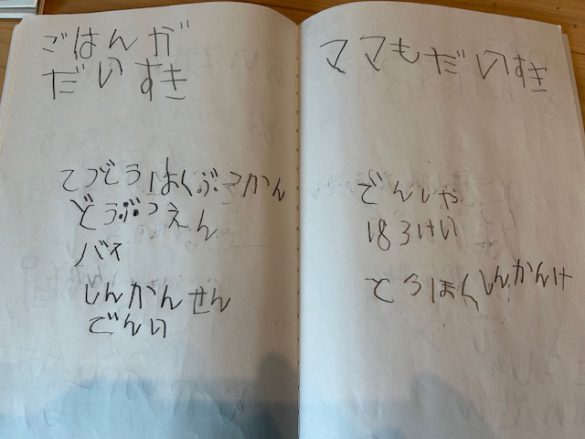 ごはんが
だいすき
てつどうはくぶつかん
どうぶつえん
バス
しんかんせん
でんし
ママもだいすき
でんしゃ
183けい
とうほくしんかんけ